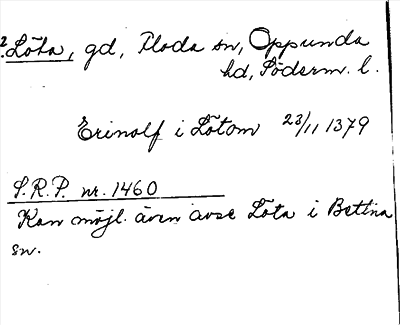 2. Löta, gd, Floda sn, Oppunda
hd, Söderm. l.
Erinolf i Lötom 23/11 1379
S.R.P. nr. 1460
Kan möjl. även avse Löta i Bettna
sn.